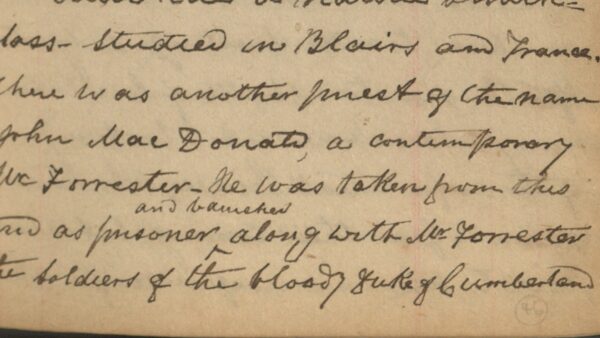 class - studied in Blairs and France.
There was another priest of the name
John Mac Donald, a contemporary
Mr Forrester - He was taken from this
and banished
and as prisoner along with Mr Forrester
the soldiers of the bloody Duke of Cumberland
46